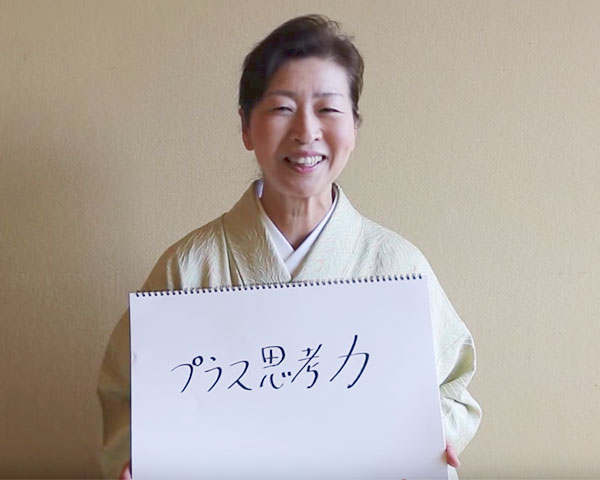 プラス思考力